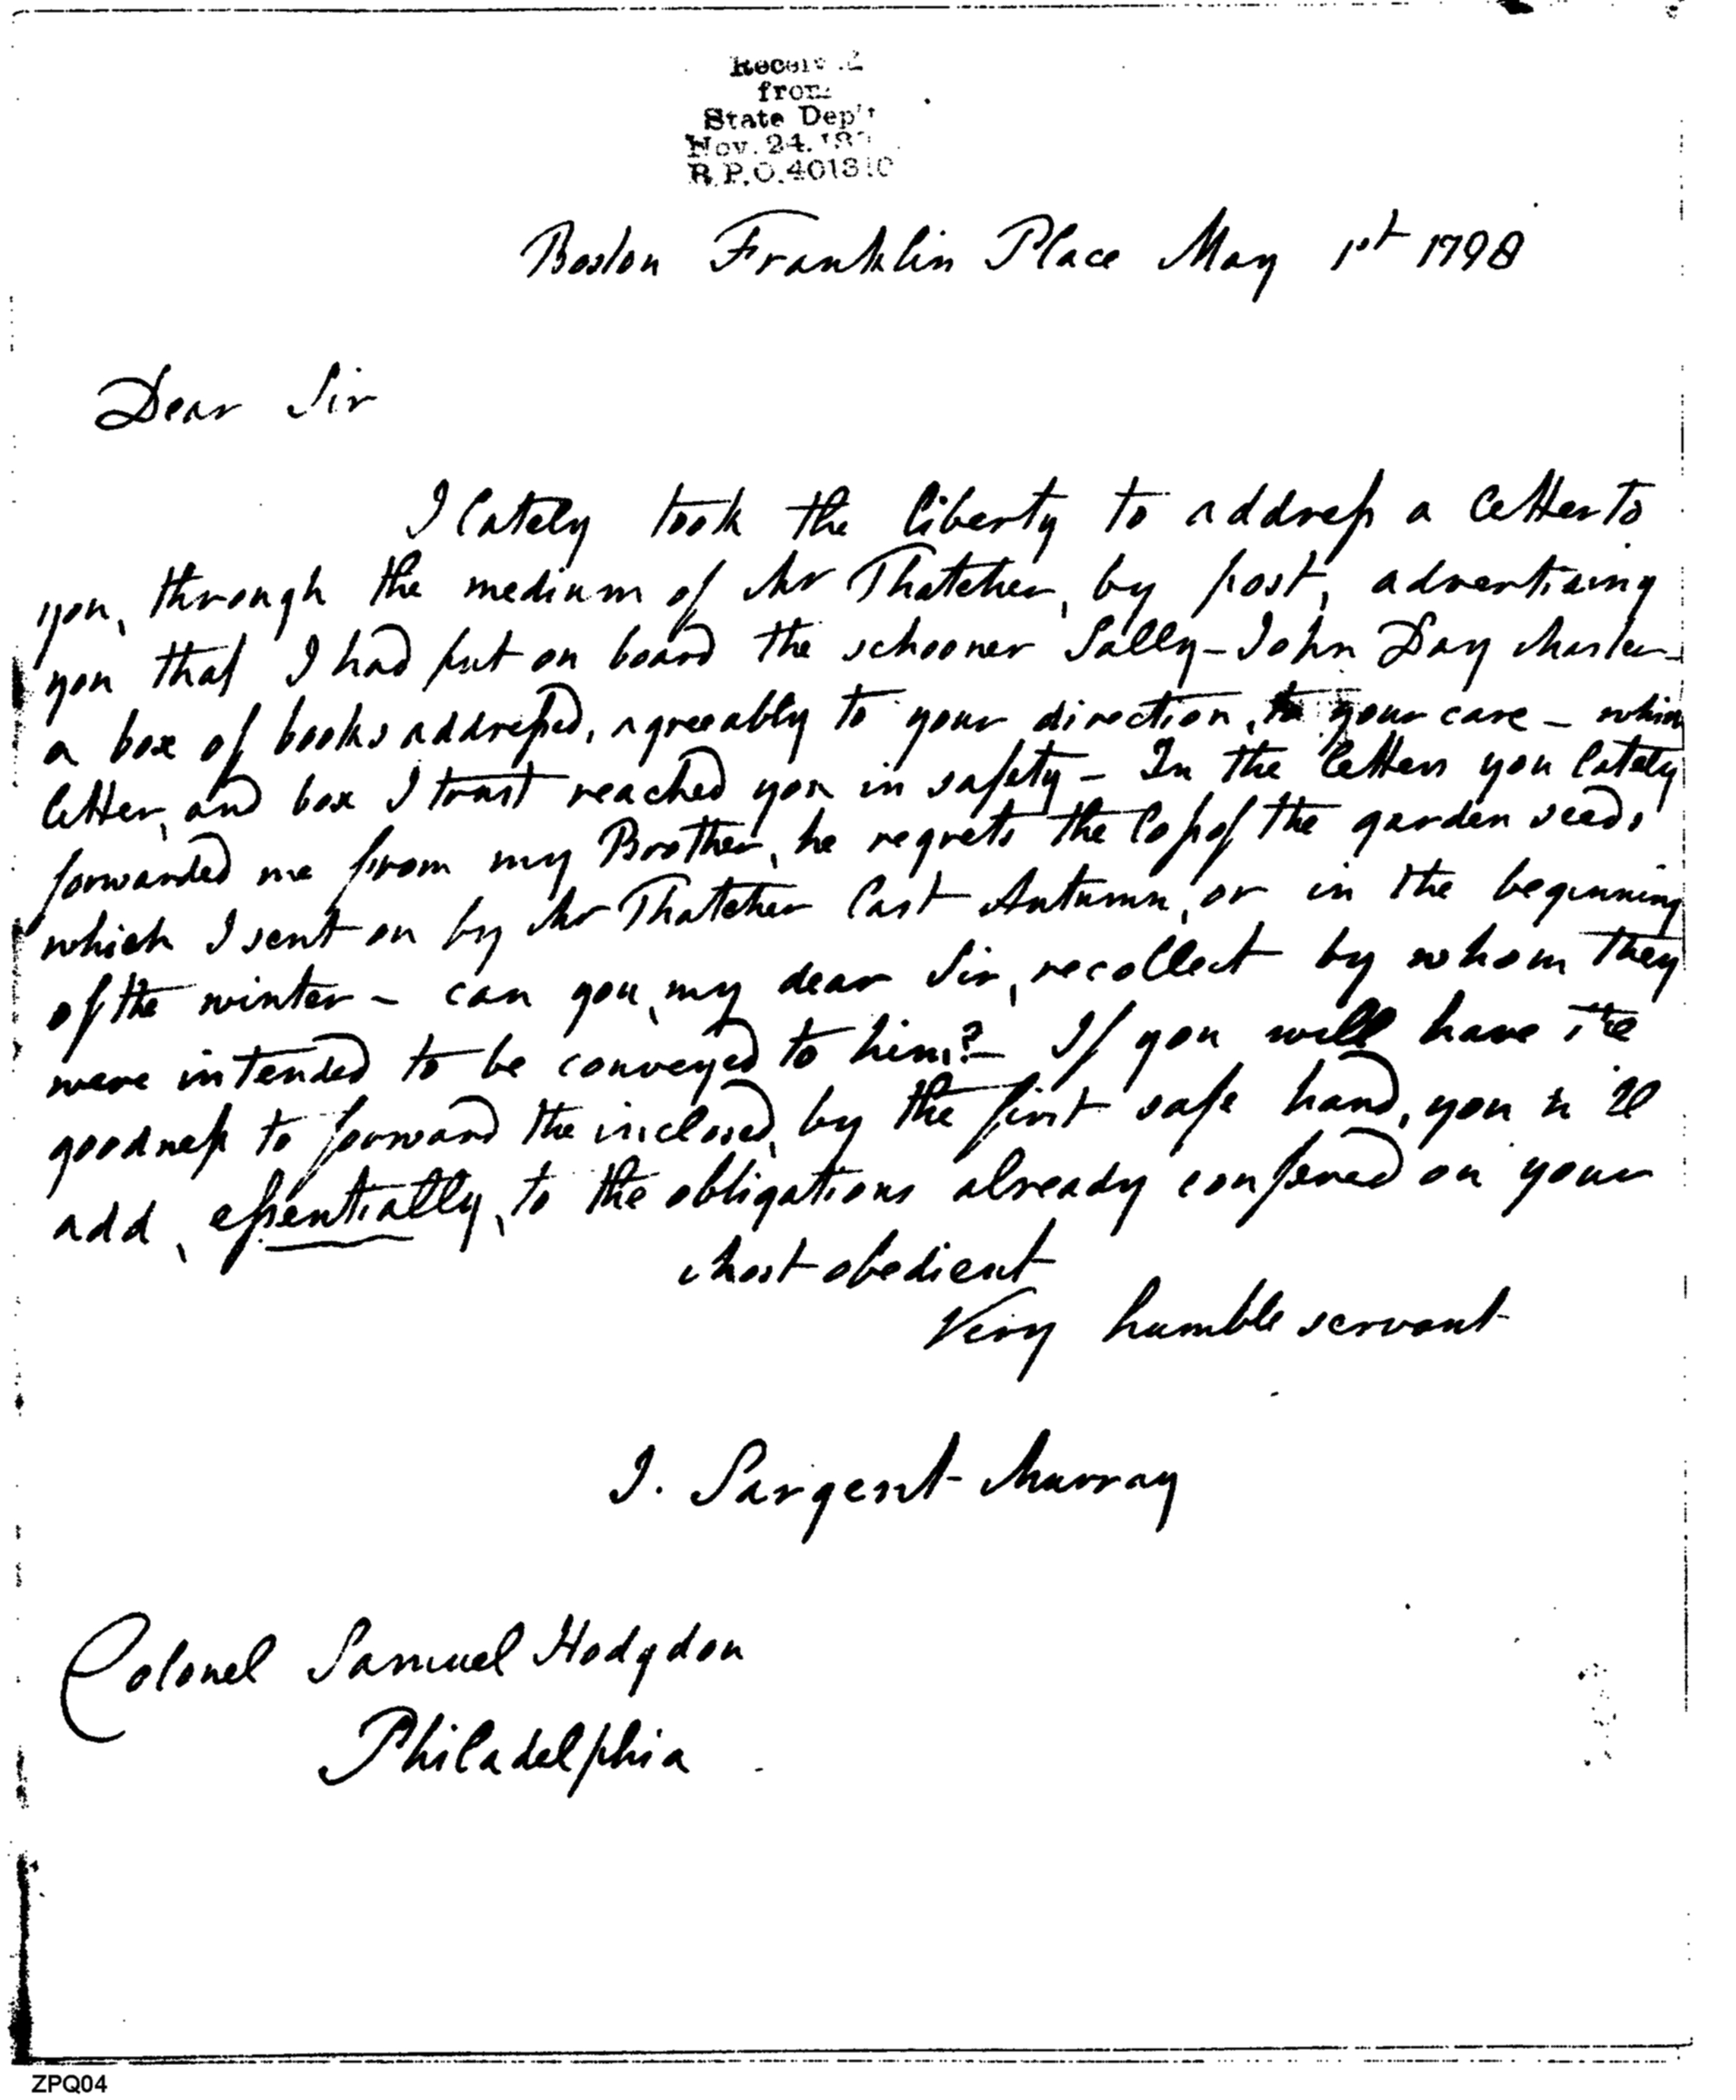 Received
from
State Dep't
Nov. 24.
R.P.O. 401310
Boston Franklin Place May 1st 1798
Dear Sir
I lately took the liberty to address a letter to
you, through the medium of Mr Thatcher, by post, advertising
you that I had put on board the schooner Sally – John Day Master –
a box of books addressed, agreeably to your direction, to your care – which
letter, and box I trust reached you in safety – In the letters you lately
forwarded me from my Brother, he regrets the loss of the garden seeds
which I sent on by Mr Thatcher last Autumn, or in the beginning
of the winter – can you, my dear Sir, recollect by whom they
were intended to be conveyed to him? – If you will have the
goodness to forward the inclosed, by the first safe hand, you will
add, essentially, to the obligations already confered on your
Most obedient
Very humble servant
J. Sargent Murray
Colonel Samuel Hodgdon
Philadelphia
ZPQ04